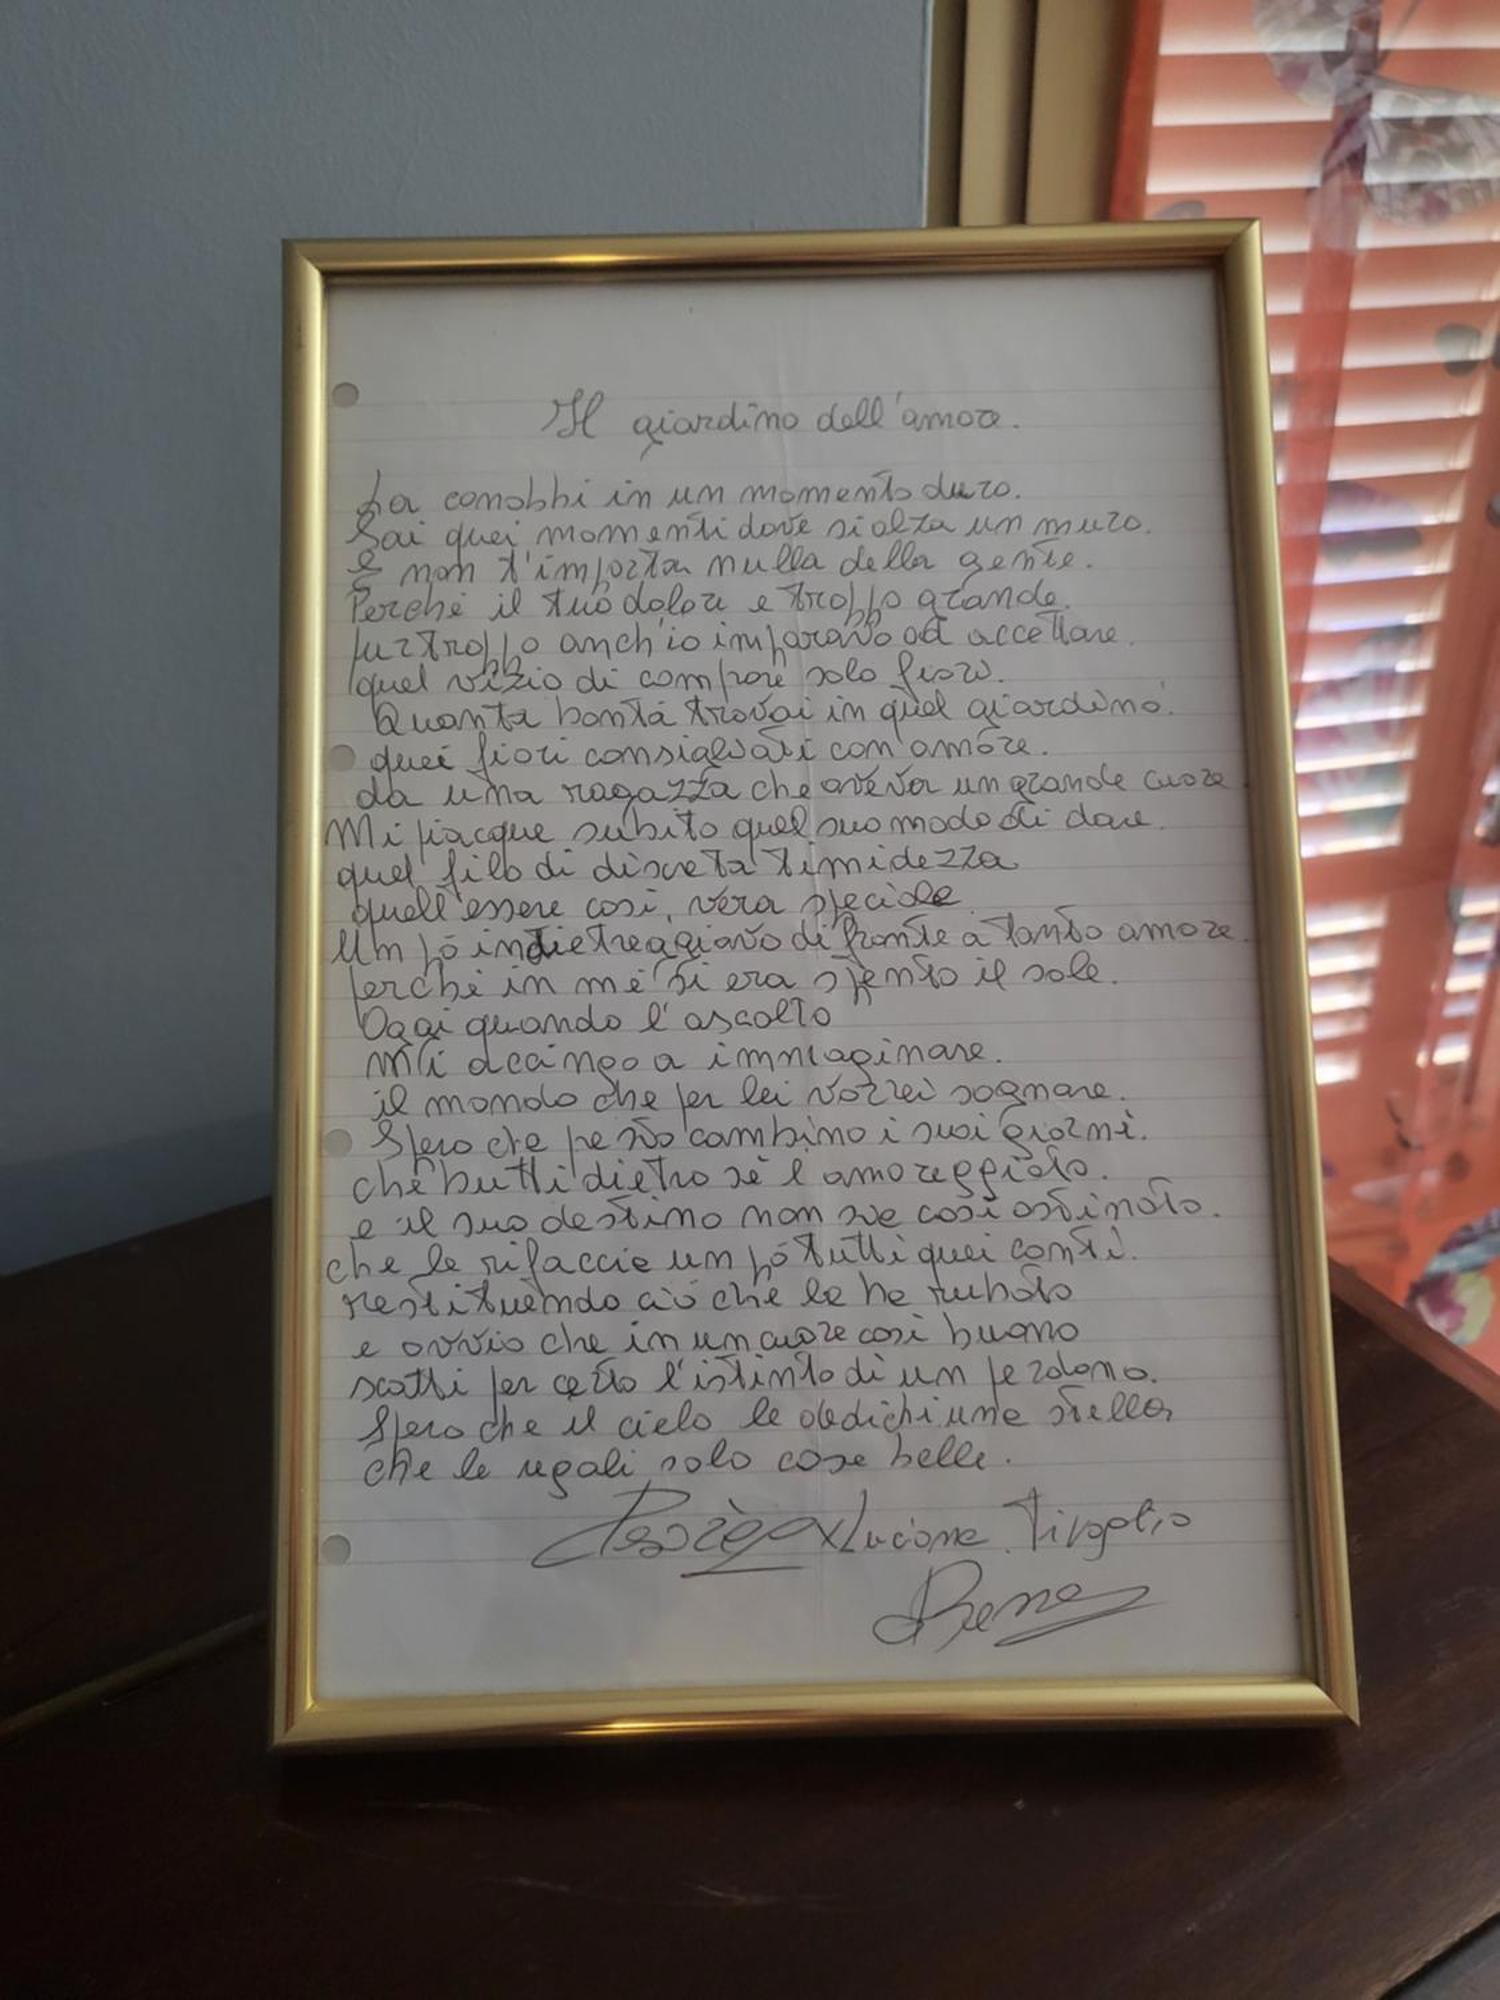 Il giardino dell'amore.
La conobbi in un momento duro.
Sai quei momenti dove si alza un muro.
E non t'importa nulla della gente.
Perché il tuo dolore e troppo grande.
Purtroppo anch'io imparavo ad accettare.
quel vizio di comprare solo fiori.
Quanta bontá trovai in quel giardino.
quei fiori consigliati con amore.
da una ragazza che aveva un grande cuore.
Mi piacque subito quel suo modo di dare.
quel filo di discreta timidezza
quell'essere cosi, vera speciale
Un pó indietreggiavo di fronte a tanto amore.
Perché in mé si era spento il sole.
Oggi quando l'ascolto
Mi accingo a immaginare.
il mondo che per lei vorrei sognare.
Spero che presto cambino i suoi giorni.
che butti dietro sé l'amoreggiato.
e il suo destino non sia cosi ostinato.
che le rifaccia un pó tutti quei conti.
restituendo ció che le ha rubato
e ovvio che in un cuore cosi buono
scatti per certo l'istinto di un perdono.
Spero che il cielo le dedichi una stella
che le regali solo cose belle.
x Luciana